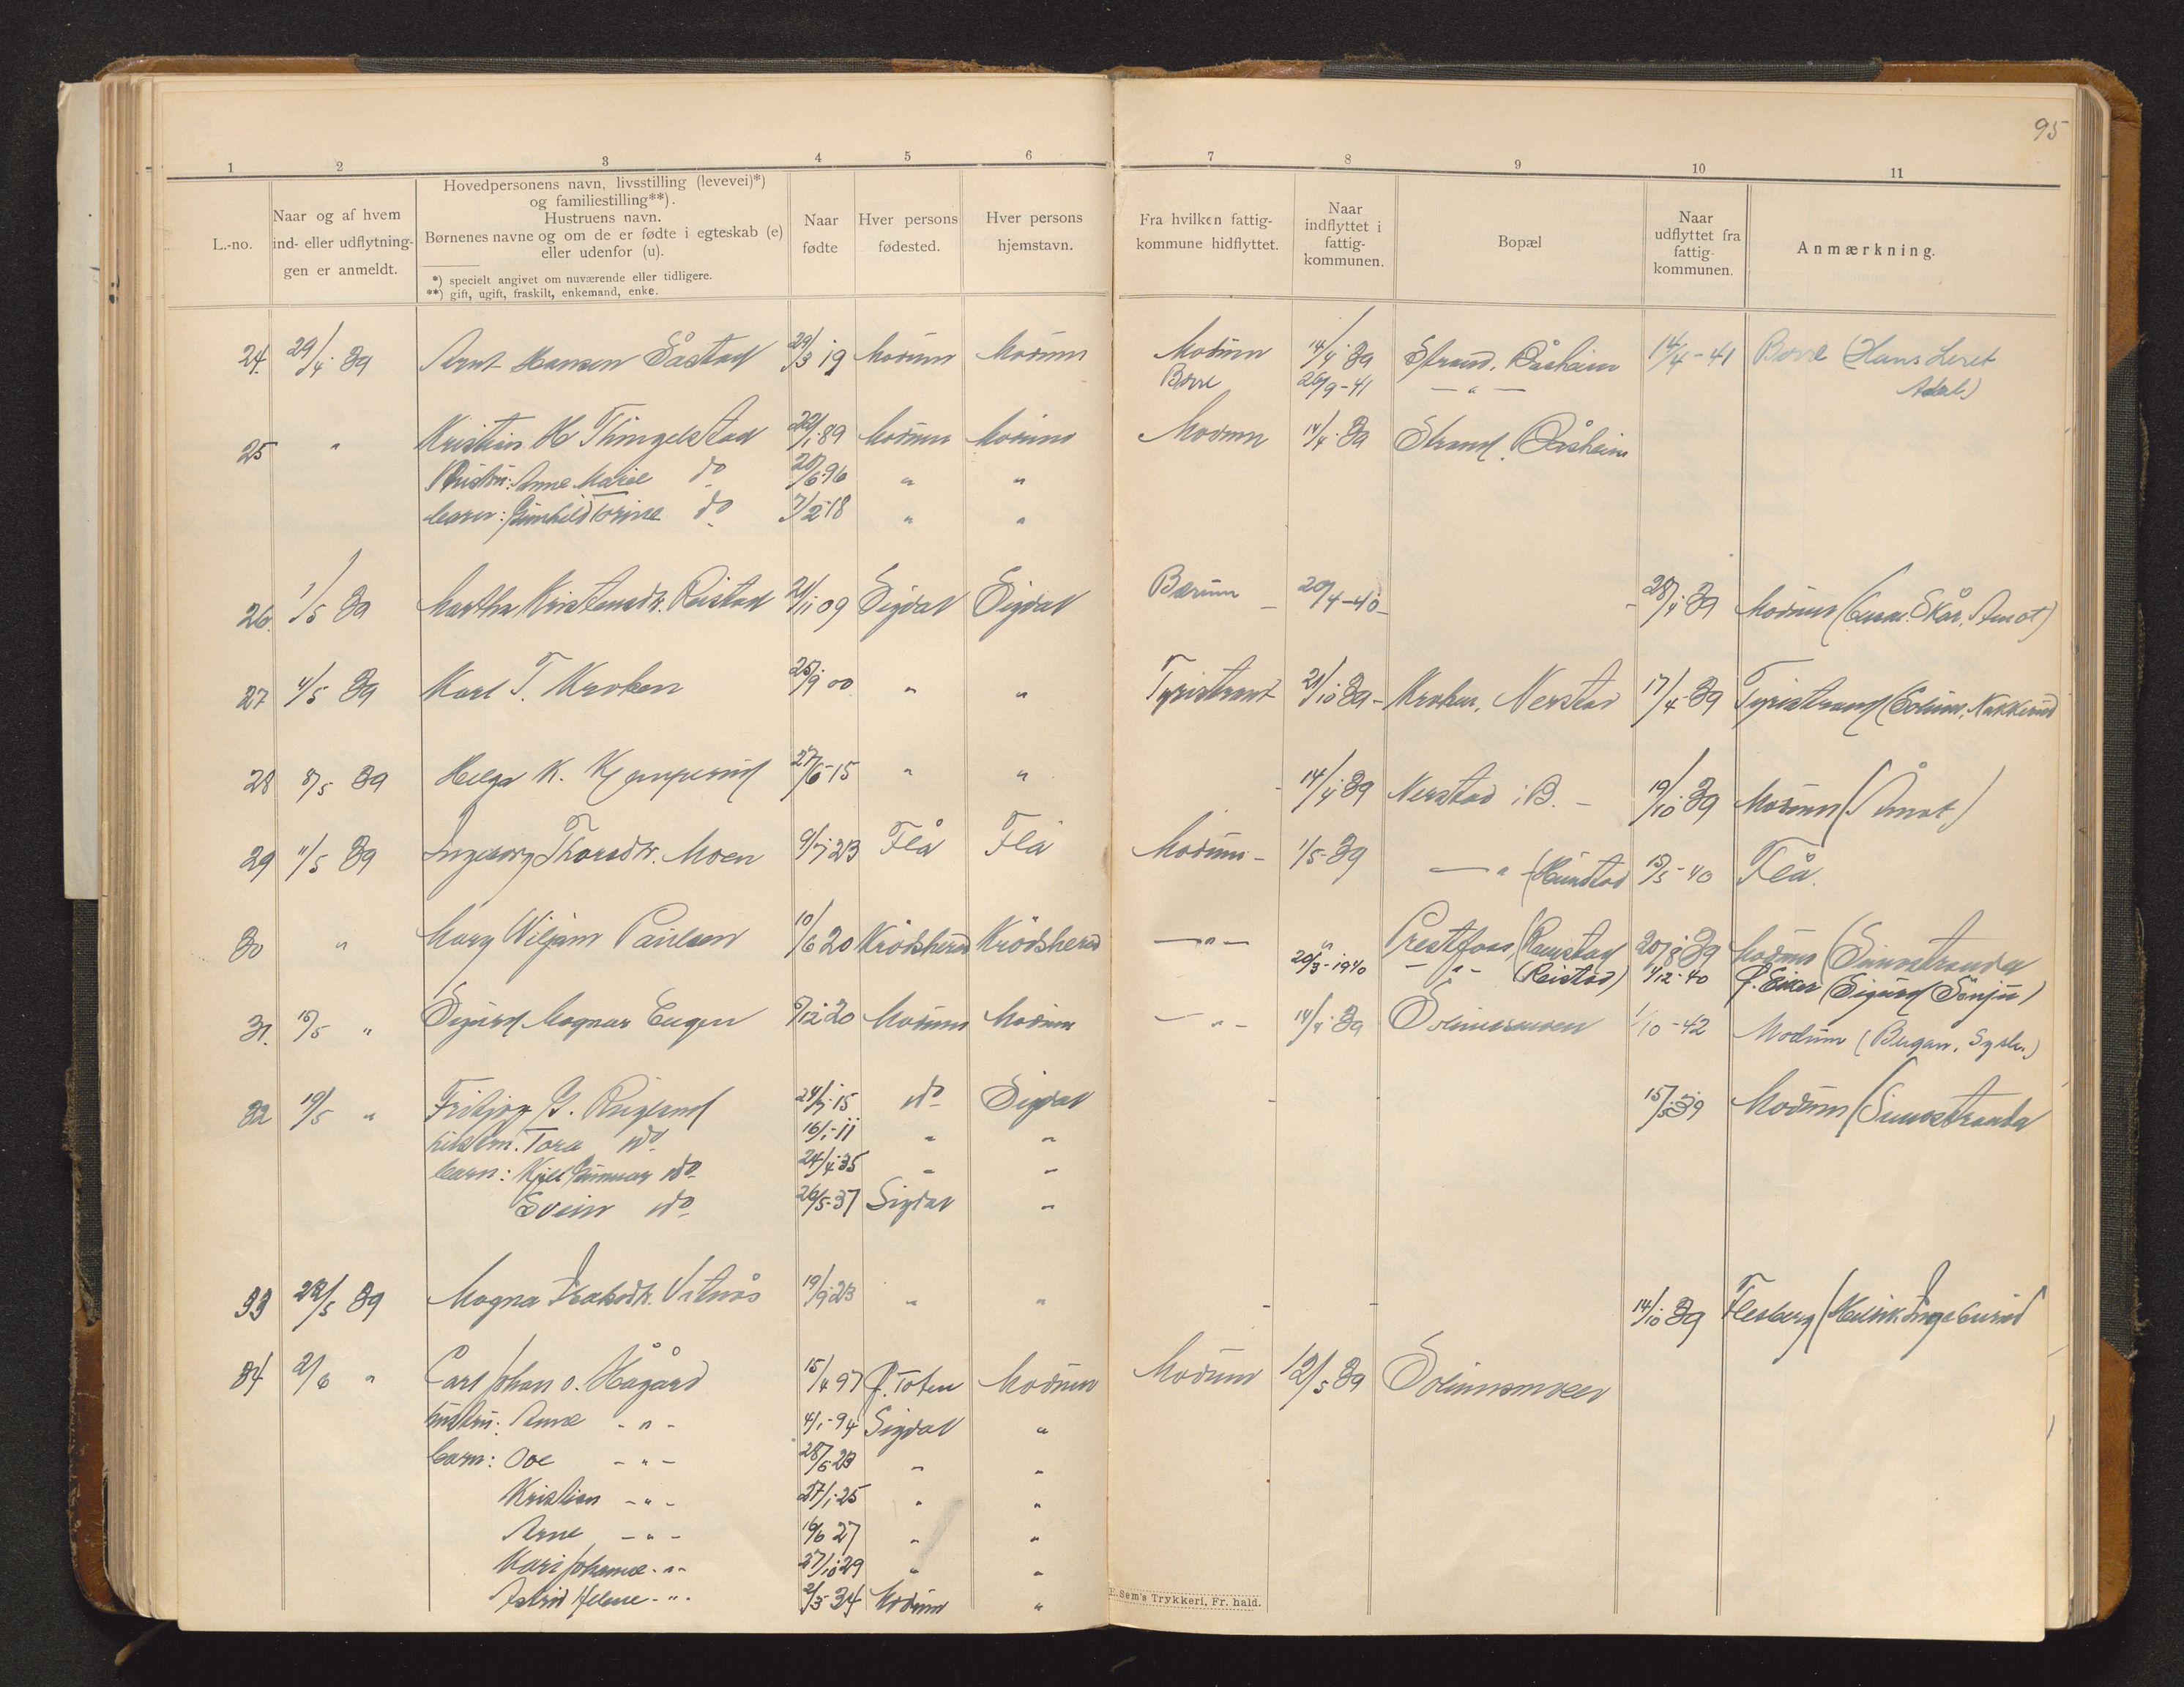 95
1 2 3 4 5 6 7 8 9 10 11
L.-no.
Naar og af hvem
ind- eller udflytning-
gen er anmeldt.
Hovedpersonens navn, livsstilling (levevei)*)
og familiestilling**).
Hustruens navn.
Børnenes navne og om de er fødte i egteskab (e)
eller udenfor (u).
*) specielt angivet om nuværende eller tidligere.
**) gift, ugift, fraskilt, enkemand, enke.
Naar
fødte
Hver persons
fødested.
Hver persons
hjemstavn.
Fra hvilken fattig-
kommune hidflyttet.
Naar
indflyttet i
fattig-
kommunen.
Bopæl
Naar
udflyttet fra
fattig-
kommunen.
Anmærkning.
24. 29/4 39 Arnt Hansen Såstad 29/3 19 Modum Modum Modum 14/4 39 Strand, Båsheim 14/4-41 Borre (Hans Leret
Borre 26/9-41 — " — Adal.)
25 " Kristian H Thingelstad 22/1 89 Modum Modum Modum 14/4 39 Strand, Båsheim
Hustru: Anne Marie do 20/6 96 " "
barn: Gunhild Torine do 7/2-18 " "
26. 1/5 39 Martha Kristensdtr. Reistad 21/11 09 Sigdal Sigdal Bærum 20/4-40 28/4 39 Modum ( Skår, Åmot)
27 4/5 39 Karl T. Kroken 25/9 00 " " Tyristrand 21/10 39 Kroken, Nerstad 17/4 39 Tyristrand (Solum, Nakkerud
28 8/5 39 Helga K. 27/6-15 " " - 14/4 39 Nerstad i B. - 19/10 39 Modum (Åmot)
29 11/5 39 Ingeborg Thorsdtr. Moen 9/7 23 Flå Flå Modum - 1/5-39 — " — (Hunstad 15/5-40 Flå.
30 " Mary Wiljam Paulsen 10/6 20 Krödsherad Krödsherad — " — Prestfoss (Ramstad 20/8 39 Modum (Simostranda
20/3-1940 - " - (Reistad) 1/12-40 Ø. Eiker (Sigurd Sönju)
31. 15/5 " Sigurd Magnar Eugen 9/12 20 Modum Modum — " — 14/4 39 Solumsmoen 1/10-42 Modum (Bugan, Sysle.)
32 19/5 " Fritjog G. Ringlund 24/7-15 do Sigdal - - 15/5 39 Modum (Simostranda
hustru. Tora do 16/1-11 " "
barn: Kjell Gunnar do 24/4 35 " "
Svein do 26/5-37 Sigdal "
33 23/5 39 Magna Isaksdtr. Vitnås 19/9 23 " " - - 14/10 39 Flesberg (Helrik Ingeburud
34 2/6 " Carl Johan O. Hågård 15/4 97 Ø. Toten Modum Modum 12/5 39 Solumsmoen
hustru: Anne - " - 4/1-94 Sigdal "
barn: Ove - " - 28/5 23 " "
Kristian - " - 27/1-25 " "
Arne - " - 16/6 27 " "
Kari Johanne - " - 27/10 29 " "
Astrid Helene - " - 2/3 34 Modum "
E. Sem's Trykkeri, Fr. hald.